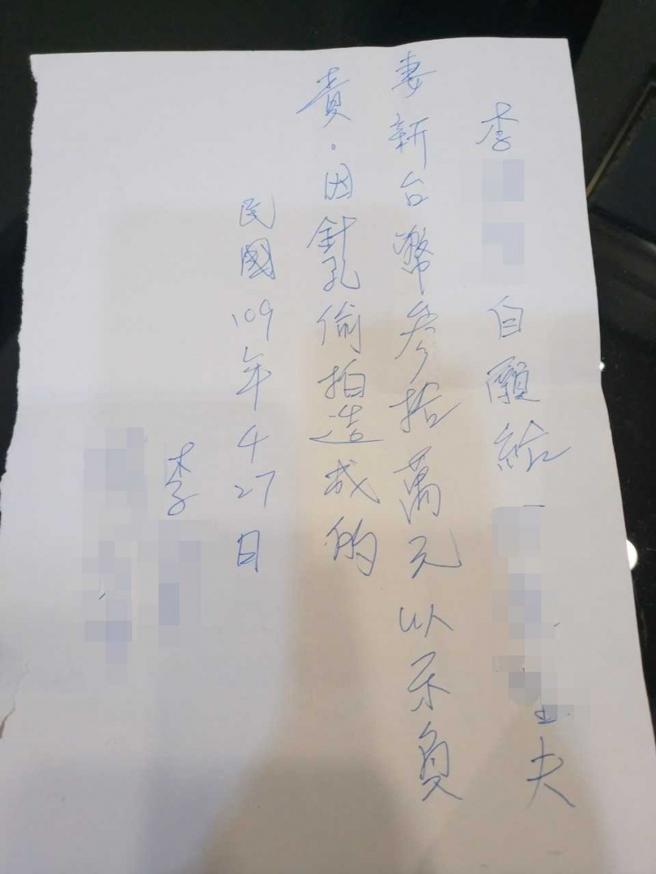 李 自願給 夫
妻新台幣參拾萬元以示負
責。因針孔偷拍造成的
民國109年4 27日
李